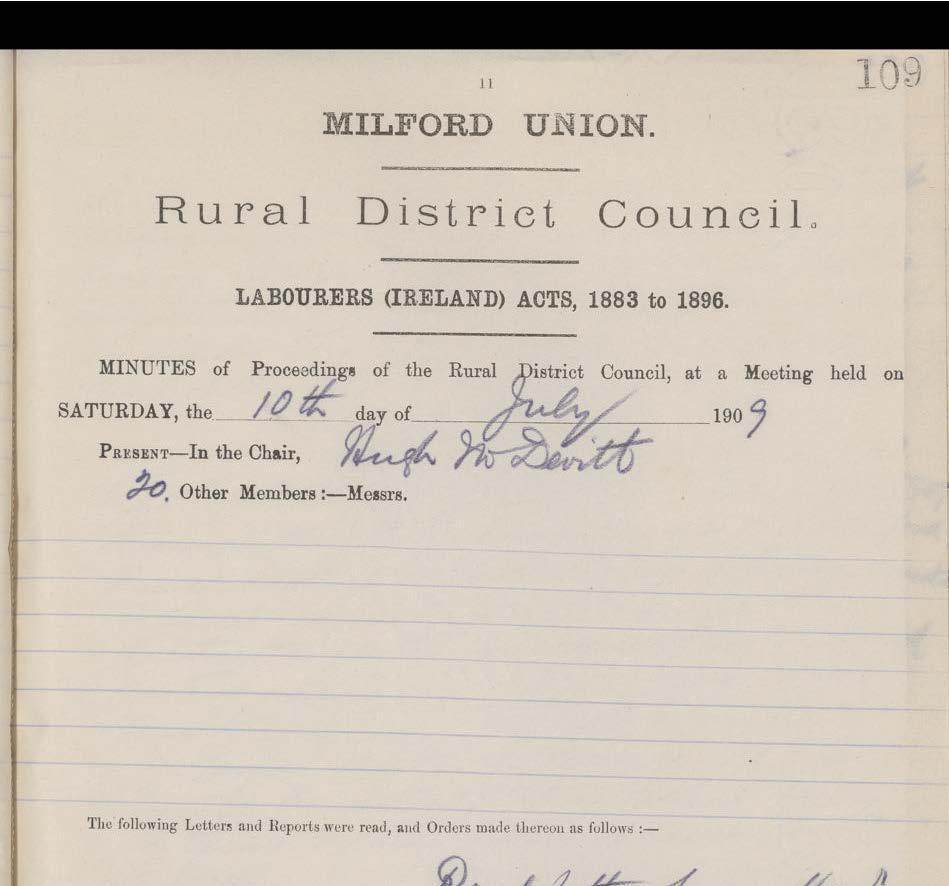 109
11
MILFORD UNION.
Rural District Council.
LABOURERS (IRELAND) ACTS, 1883 to 1896.
MINUTES of Proceedings of the Rural District Council, at a Meeting held on
SATURDAY, the 10th day of July 1909
PRESENT—In the Chair, Hugh McDevitt
20. Other Members:—Messrs.
The following Letters and Reports were read, and Orders made thereon as follows :—